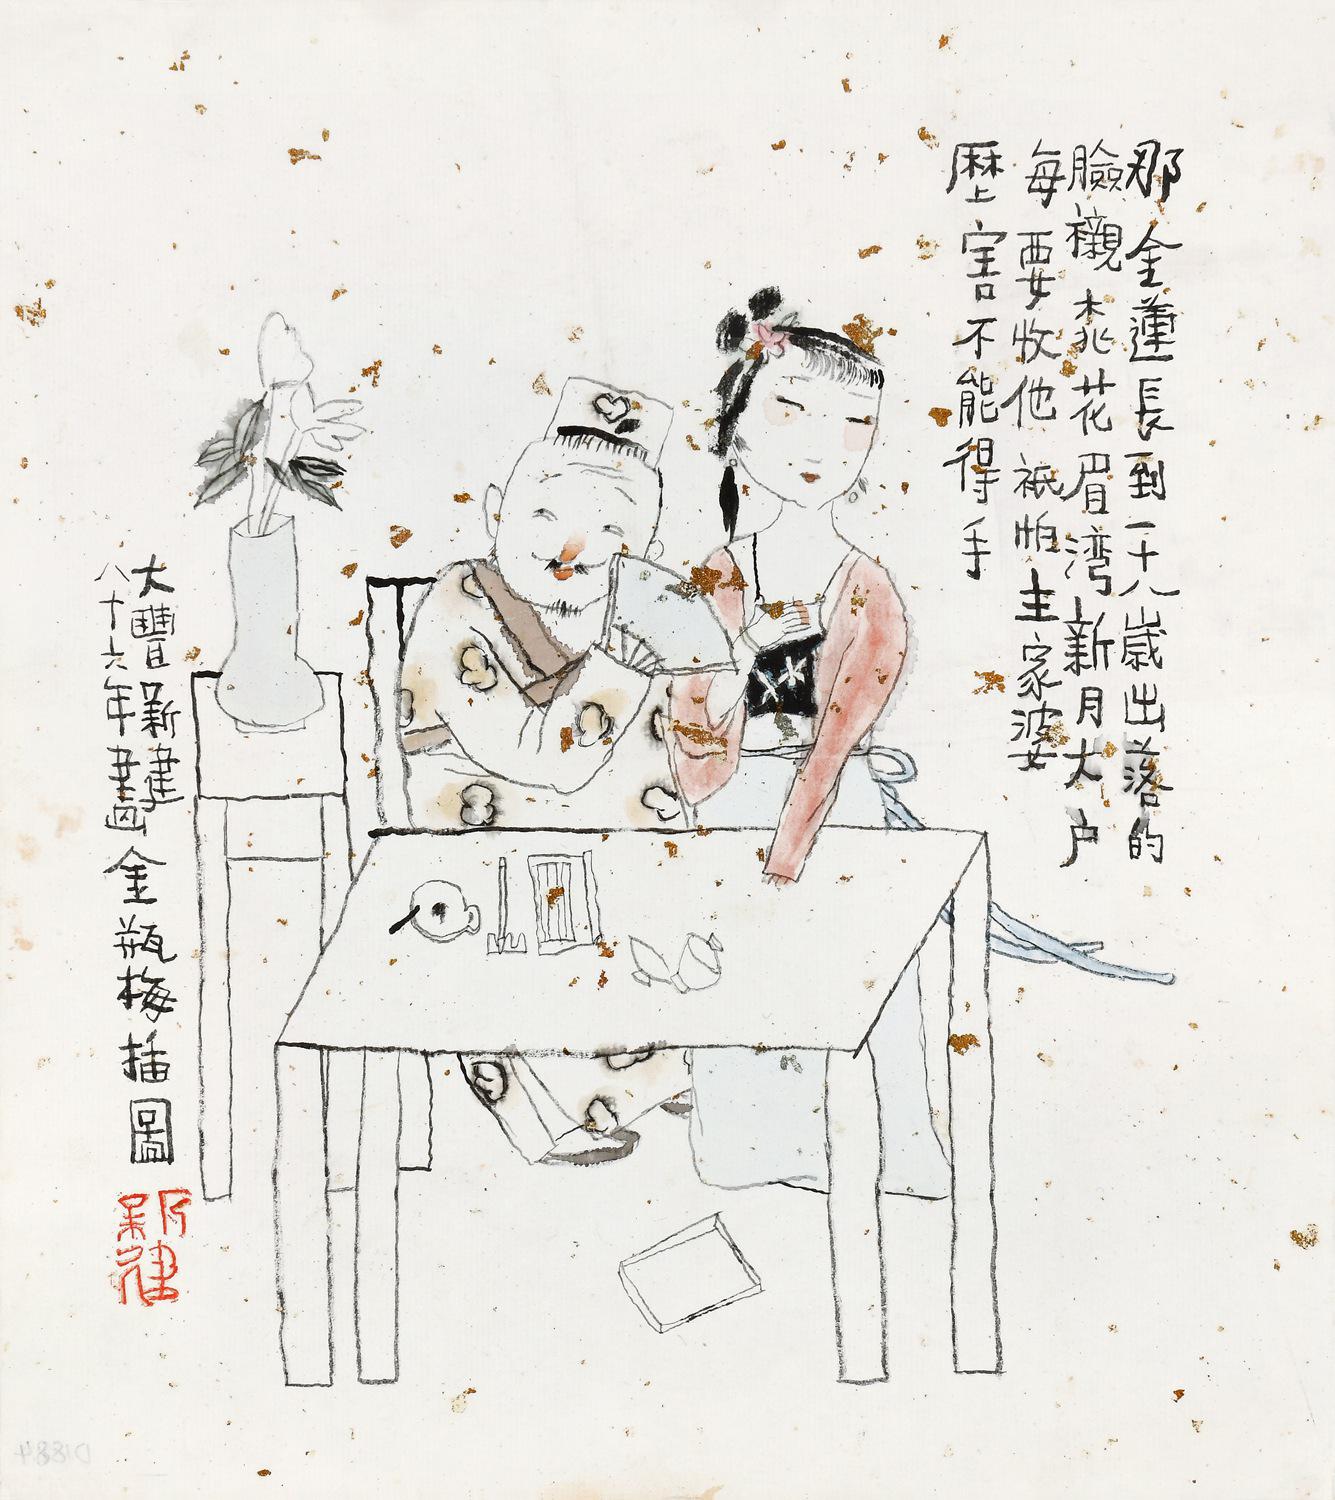 那金蓮長到一十八歲出落的
臉襯桃花眉湾新月大户
每要收他祇怕主家婆
歷害不能得手
大豐新建
八十六年畫金瓶梅插圖
新建